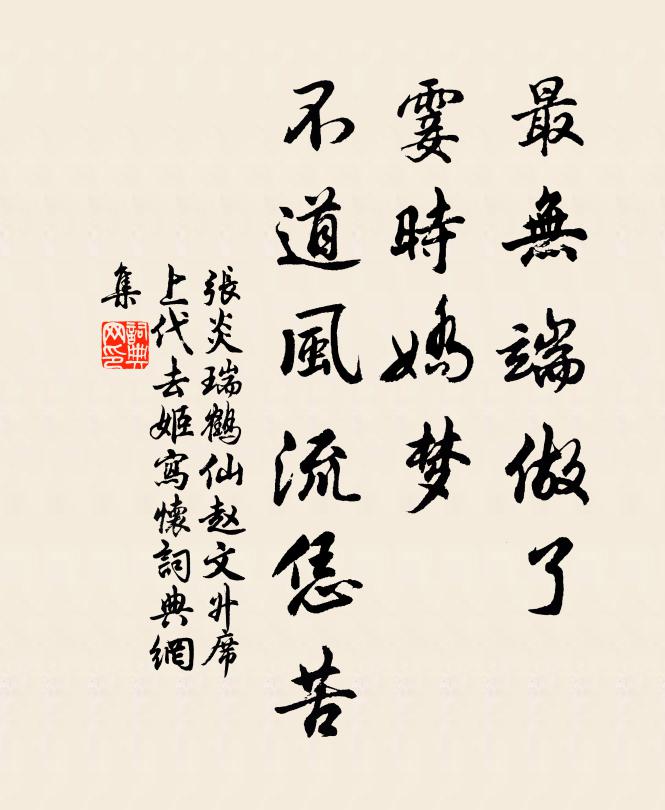 最無端做了
霎時嬌梦
不道風流恁苦
張炎瑞鶴仙赵文升席
上代去姬寫懷詞典網
集
詞典
网印